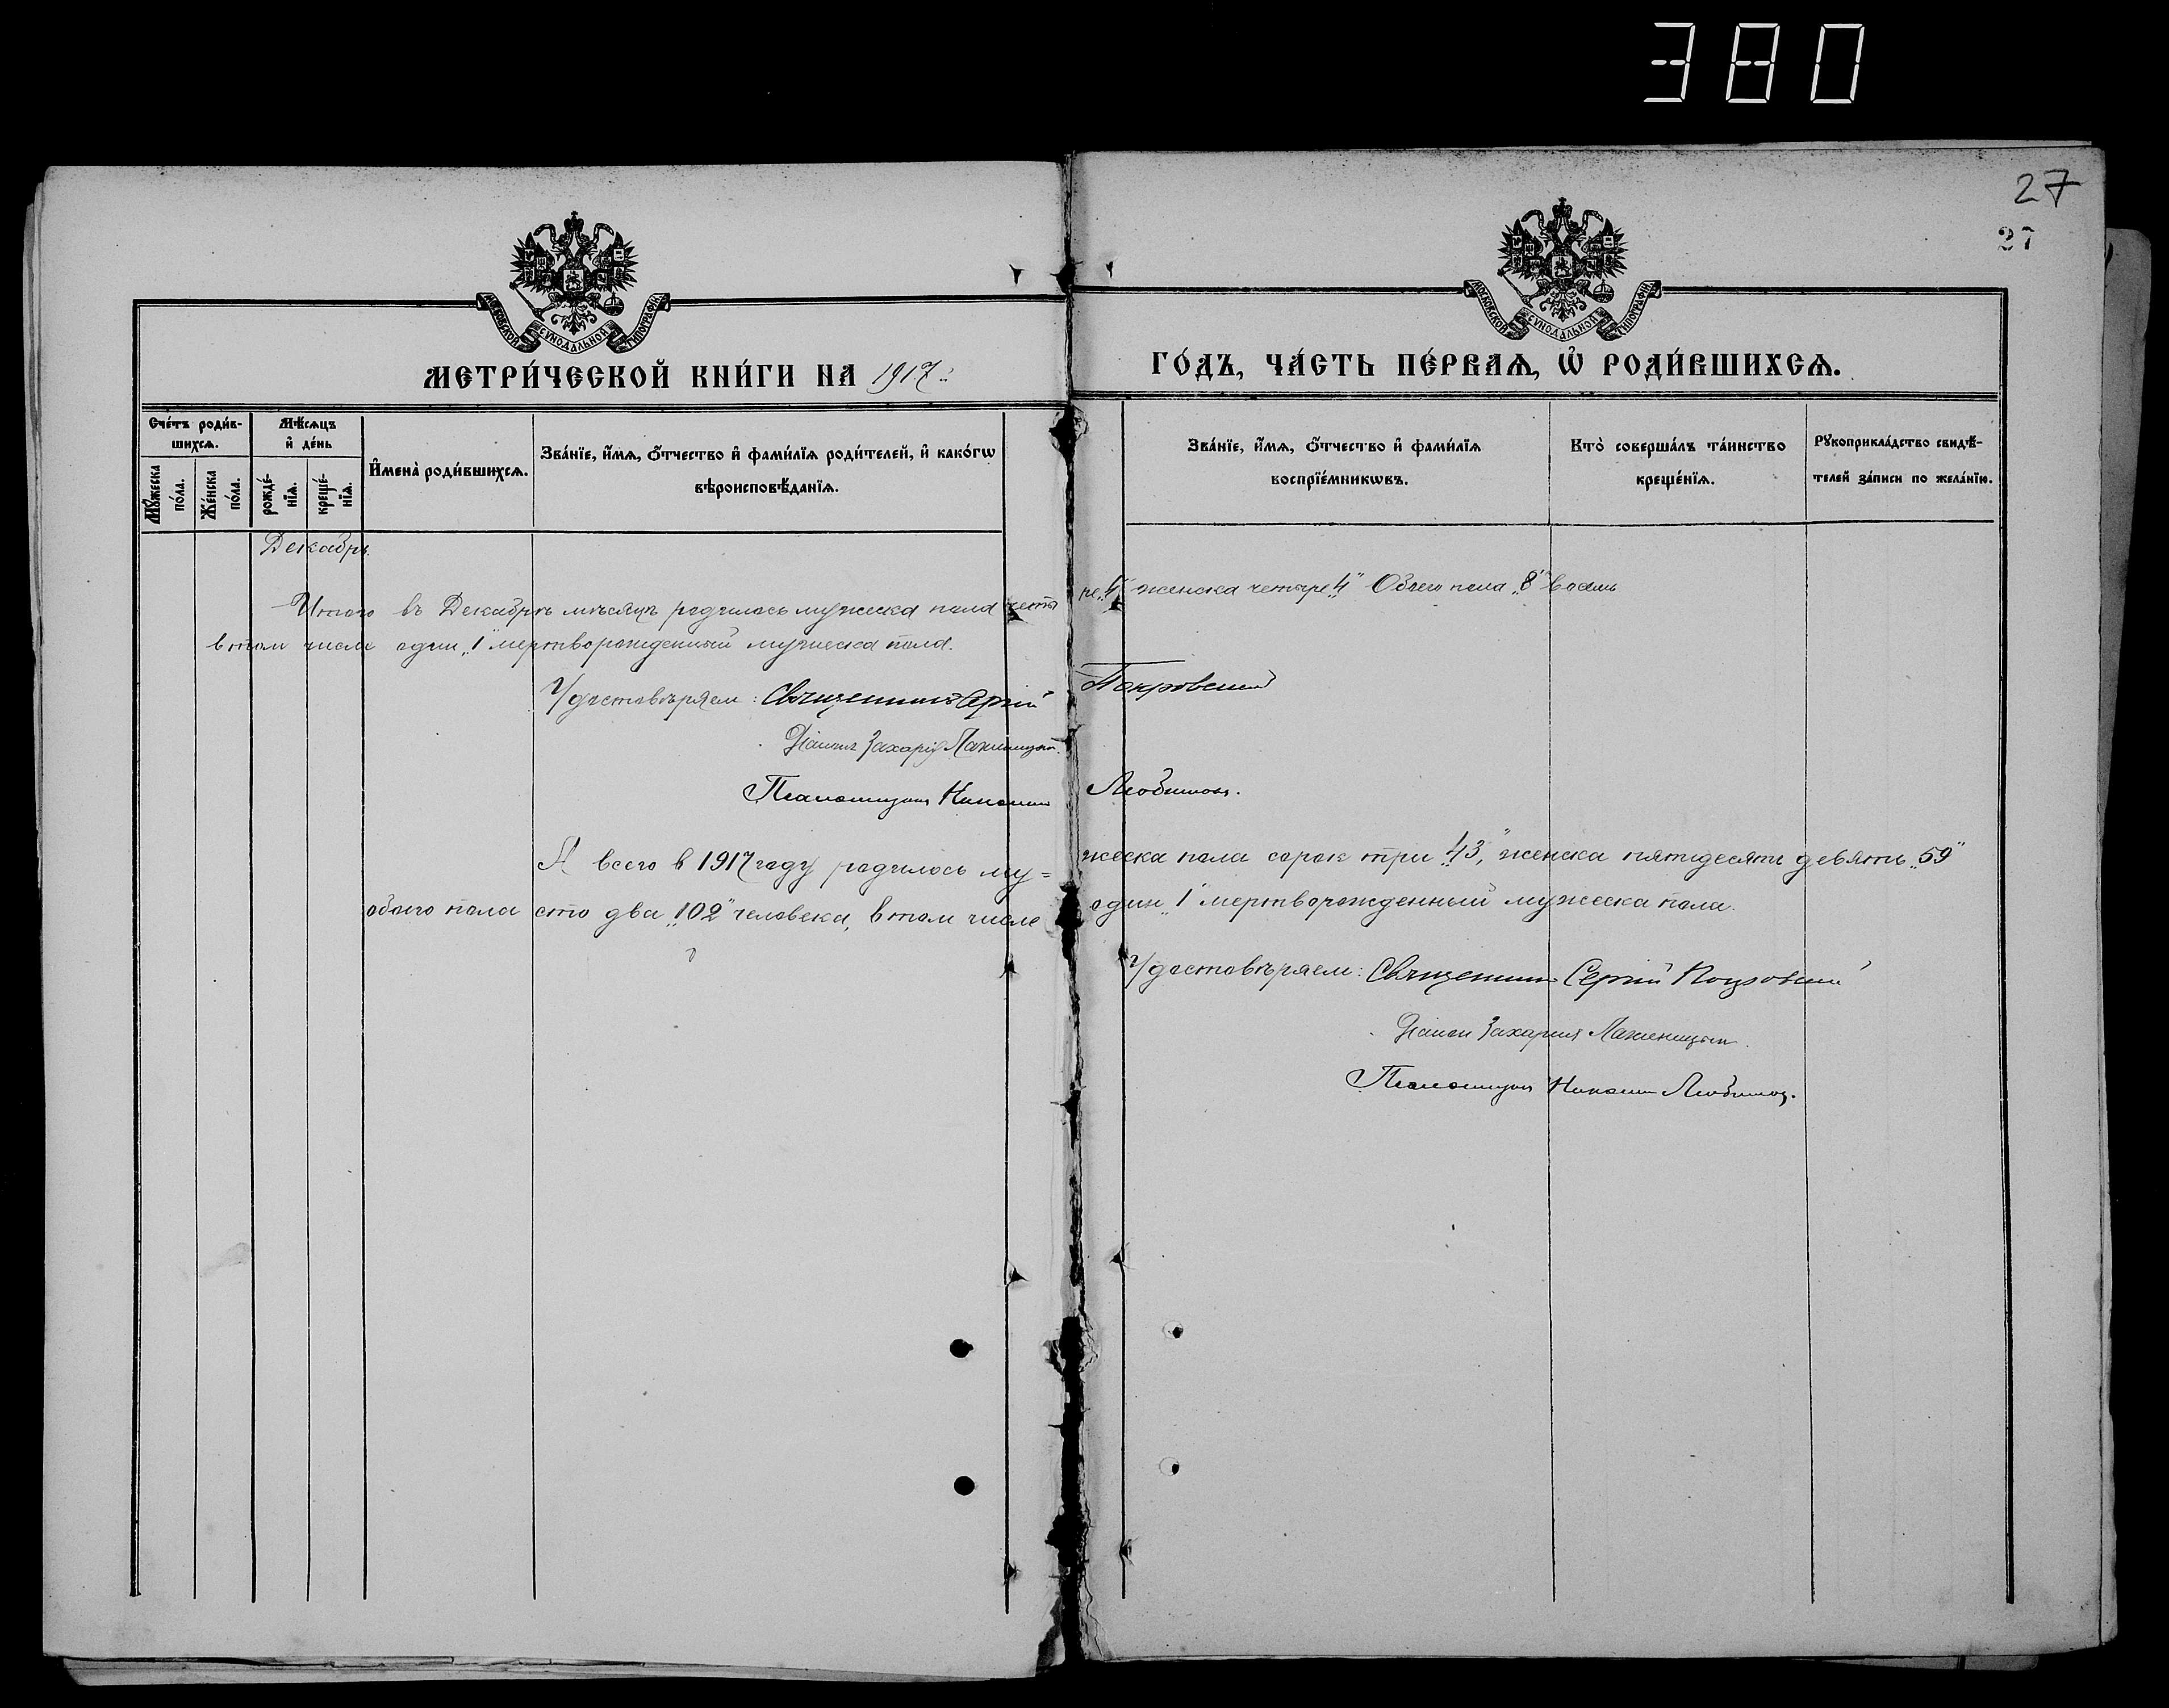 380
27
27
МОСКОВСКОЙ СѴНОДАЛЬНОЙ ТИПОГРАФІИ
МОСКОВСКОЙ СѴНОДАЛЬНОЙ ТИПОГРАФІИ
МЕТРИ́ЧЕСКОЙ КНИ́ГИ НА 1917 ГО́ДЪ, ЧА́СТЬ ПЕ́РВАѦ, Ѡ҆ РОДИ́ВШИХСѦ.
Сче́тъ роди́в-
шихсѧ.
Мꙋ́жеска
по́ла.
Же́нска
по́ла.
Мѣ́сѧцъ
и҆ де́нь
рожде́-
нїѧ.
креще́-
нїѧ.
И҆мена̀ роди́вшихсѧ.
Зва́нїе, и҆́мѧ, ѻ҆́тчество и҆ фами́лїѧ роди́телей, и҆ како́гѡ
вѣроисповѣ́данїѧ.
Зва́нїе, и҆́мѧ, ѻ҆́тчество и҆ фами́лїѧ
воспрїе́мникѡвъ.
Кто̀ соверша́лъ та́инство
креще́нїѧ.
Рꙋкоприкла́дство свидѣ́-
телей за́писи по жела́нїю.
Декабрь
Итого въ Декабрѣ мѣсяцѣ родилось мужеска пола четы ре „4" женска четыре „4" Обоего пола „8" восемь
в том числе один „1" мертворожденный мужеска пола.
Удостовѣряем: Священникъ Сергій Покровскій
Діаконъ Захарія
Псаломщикъ Николай Любимов.
А всего в 1917 году родилось му= жеска пола сорок три „43", женска пятьдесят девять „59"
обоего пола сто два „102" человека, в том числе один „1" мертворожденный мужеска пола.
Удостовѣряем: Священник Сергій Покровскій
Діакон Захария
Псаломщик Николай Любимов.